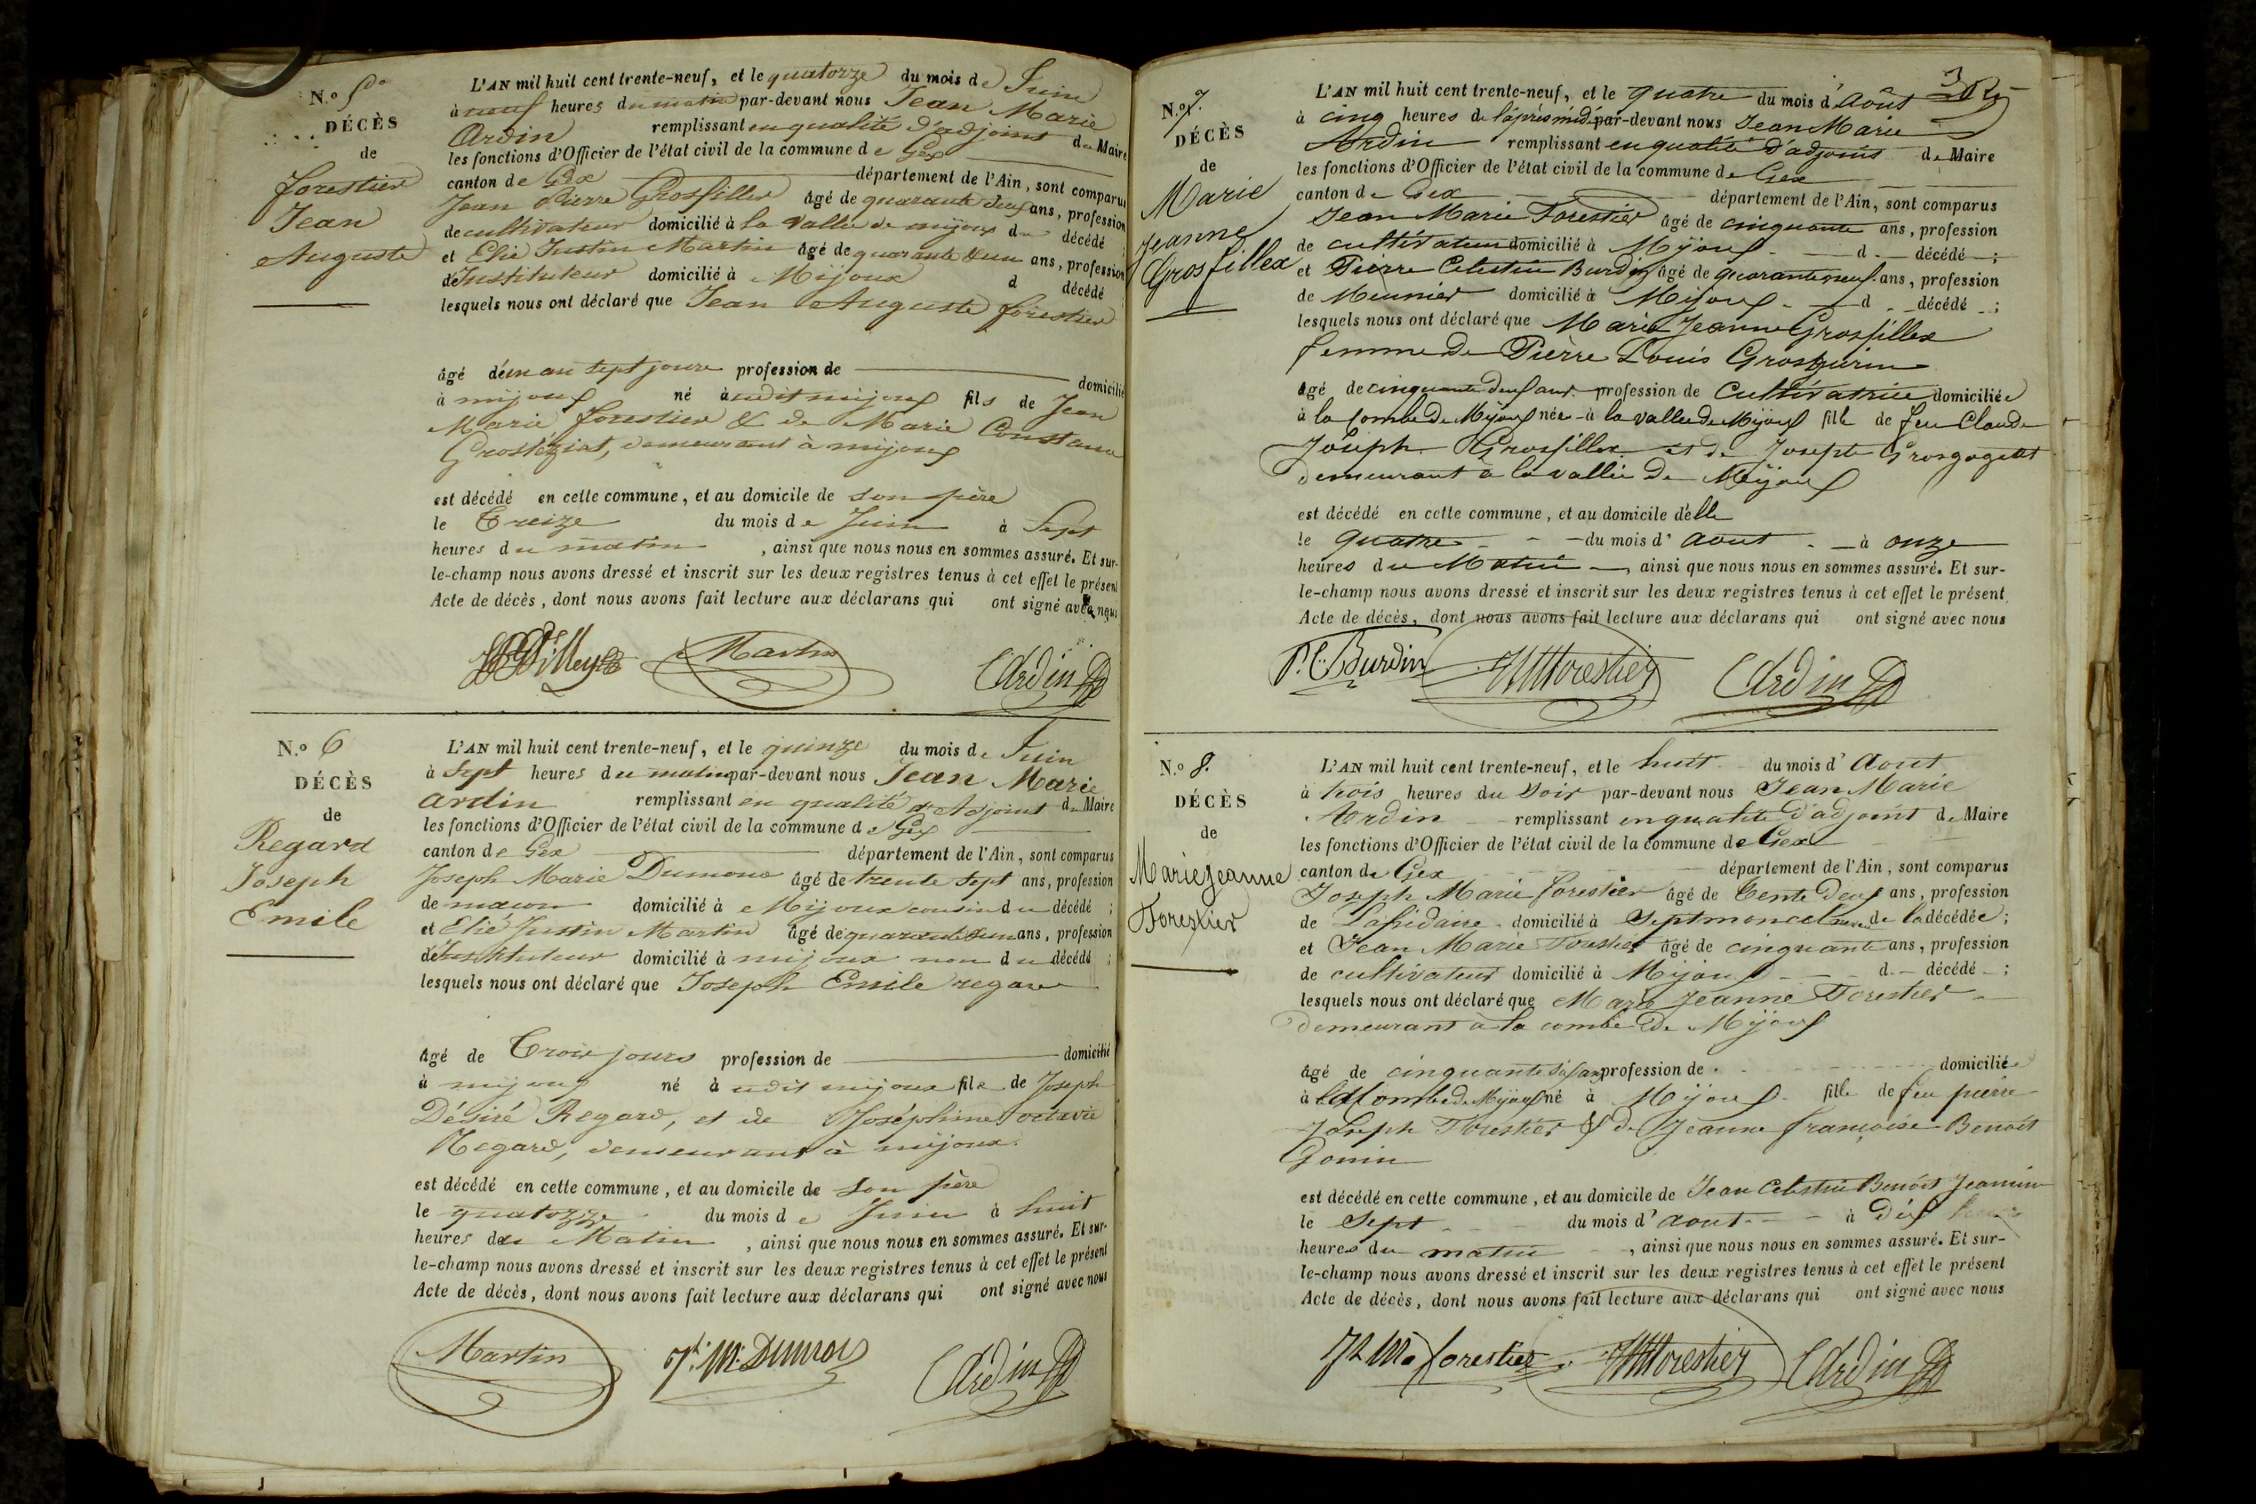 N.º 5º
DÉCÈS
de
forestier
Jean
Auguste
L'AN mil huit cent trente-neuf, et le quatorze du mois de Juin
à neuf heures du matin par-devant nous Jean Marie
Ardin remplissant en qualité d'adjoint du Maire
les fonctions d'Officier de l'état civil de la commune de Gex
canton de Gex département de l'Ain, sont comparus
Jean Pierre Grosfiller âgé de quarante deux ans, profession
de cultivateur domicilié à la Vallée de mijoux du décédé ;
et Elie Justin Martin âgé de quarante & un ans, profession
d'Instituteur domicilié à Mijoux d décédé
lesquels nous ont déclaré que Jean Auguste forestier
âgé d'un an sept jours profession de domicilié
à mijoux né audit mijoux fils de Jean
Marie forestier & de Marie Constance
demeurant à mijoux
est décédé en cette commune, et au domicile de son père
le Treize du mois de Juin à Sept
heures du matin , ainsi que nous nous en sommes assuré. Et sur-
le-champ nous avons dressé et inscrit sur les deux registres tenus à cet effet le présent
Acte de décès, dont nous avons fait lecture aux déclarans qui ont signé avec nous
Martin Ardin
N.º 6
DÉCÈS
de
Regard
Joseph
Emile
L'AN mil huit cent trente-neuf, et le quinze du mois de Juin
à Sept heures du matin par-devant nous Jean Marie
ardin remplissant en qualité d'Adjoint du Maire
les fonctions d'Officier de l'état civil de la commune de Gex
canton de Gex département de l'Ain, sont comparus
Joseph Marie Dumond âgé de trente sept ans, profession
de macon domicilié à Mijoux cousin du décédé ;
et Elie Justin Martin âgé de quarante & un ans, profession
d'Instituteur domicilié à mijoux non du décédé ;
lesquels nous ont déclaré que Joseph Emile regard
âgé de Trois jours profession de domicilié
à mijoux né à udit mijoux fils de Joseph
Désiré Regard, et de Joséphine octavie
Regard, demeurant à mijoux.
est décédé en cette commune, et au domicile de son père
le quatorze du mois de Juin à huit
heures du Matin , ainsi que nous nous en sommes assuré. Et sur-
le-champ nous avons dressé et inscrit sur les deux registres tenus à cet effet le présent
Acte de décès, dont nous avons fait lecture aux déclarans qui ont signé avec nous
Martin Ardin
N.º 7.
DÉCÈS
de
Marie
Jeanne
Grosfillex
L'AN mil huit cent trente-neuf, et le quatre du mois d'Août
à cinq heures de l'après midi par-devant nous Jean Marie
Ardin remplissant en qualité d'adjoint du Maire
les fonctions d'Officier de l'état civil de la commune de Gex
canton de Gex département de l'Ain, sont comparus
Jean Marie Forestier âgé de cinquante ans, profession
de cultivateur domicilié à Mijoux d décédé ;
et Pierre Celestin Burdin âgé de quarante neuf ans, profession
de Meunier domicilié à Mijoux d décédé ;
lesquels nous ont déclaré que Marie Jeanne Grosfillex
femme de Pierre Louis Grosgurin
âgé de cinquante deux ans profession de Cultivatrice domiciliée
à la Combe de Mijoux née à la vallée de Mijoux fille de feu Claude
Joseph Grosfillex et de Josepte Grosgogeat
demeurant à la vallée de Mijoux
est décédé en cette commune, et au domicile d'elle
le quatre du mois d'aout à onze
heures du Matin , ainsi que nous nous en sommes assuré. Et sur-
le-champ nous avons dressé et inscrit sur les deux registres tenus à cet effet le présent
Acte de décès, dont nous avons fait lecture aux déclarans qui ont signé avec nous
P. C. Burdin JMForestier Ardin
N.º 8.
DÉCÈS
de
Marie Jeanne
Forestier
L'AN mil huit cent trente-neuf, et le huit du mois d'Aout
à trois heures du Soir par-devant nous Jean Marie
Ardin remplissant en qualité d'adjoint du Maire
les fonctions d'Officier de l'état civil de la commune de Gex
canton de Gex département de l'Ain, sont comparus
Joseph Marie forestier âgé de trente deux ans, profession
de Lapidaire domicilié à Septmoncel de la décédée ;
et Jean Marie Forestier âgé de cinquante ans, profession
de cultivateur domicilié à Mijoux d décédé ;
lesquels nous ont déclaré que Marie Jeanne Forestier
demeurant à la combe de Mijoux
âgé de cinquante six ans profession de domiciliée
à la Combe de Mijoux né à Mijoux fille de feu pierre
Joseph Forestier & de Jeanne françoise Benoit
Gonin
est décédé en cette commune, et au domicile de Jean Celestin Benoit Jeannin
le Sept du mois d'aout à Dix
heures du matin , ainsi que nous nous en sommes assuré. Et sur-
le-champ nous avons dressé et inscrit sur les deux registres tenus à cet effet le présent
Acte de décès, dont nous avons fait lecture aux déclarans qui ont signé avec nous
forestier JMForestier Ardin